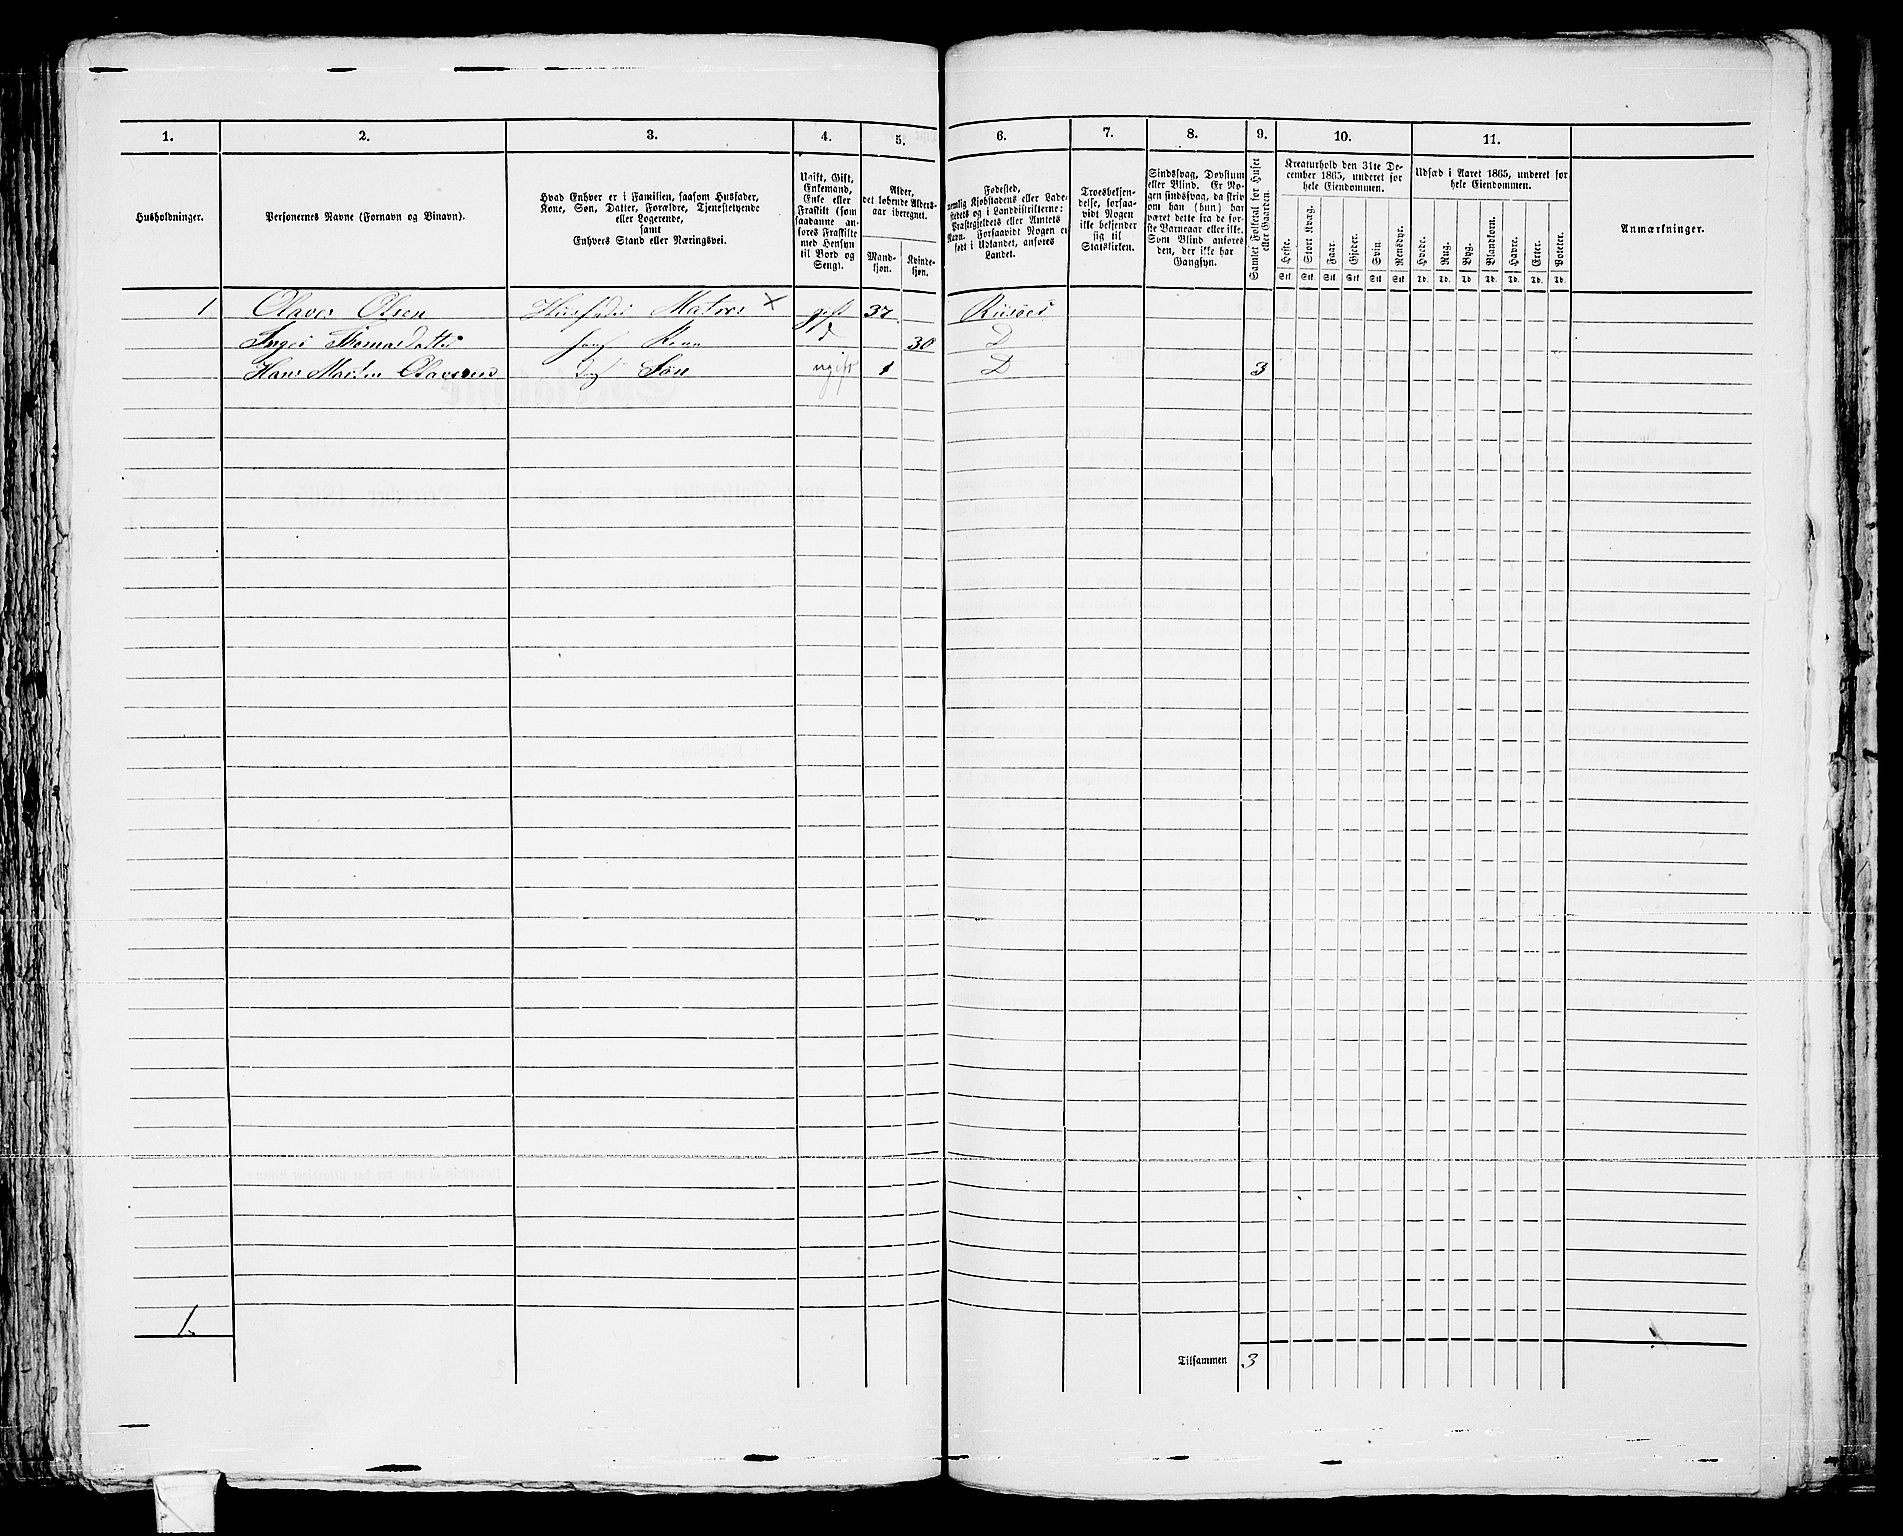 1. 2. 3. 4. 5. 6. 7. 8. 9. 10. 11.
Husholdninger.
Personernes Navne (Fornavn og Binavn).
Hvad Enhver er i Familien, saasom Husfader,
Kone, Søn, Datter, Forældre, Tjenestetyende
eller Logerende,
samt
Enhvers Stand eller Næringsvei.
Ugift, Gift,
Enkemand,
Enke eller
Fraskilt (som
saadanne an-
føres Fraskilte
med Hensyn
til Bord og
Seng).
Alder,
det løbende Alders-
aar iberegnet.
Mand-
kjøn.
Kvinde-
kjøn.
Fødested,
nemlig Kjøbstadens eller Lade-
stedets og i Landdistrikterne:
Præstegjeldets eller Amtets
Navn. Forsaavidt Nogen er
født i Udlandet, anføres
Landet.
Troesbekjen-
delse, forsaa-
vidt Nogen
ikke bekjender
sig til
Statskirken.
Sindssvag, Døvstum
eller Blind. Er No-
gen sindssvag, da skriv
om han (hun) har
været dette fra de før-
ste Barneaar eller ikke.
Som Blind anføres
den, der ikke har
Gangsyn.
Samlet Folketal for Huset
eller Gaarden.
Kreaturhold den 31te De-
cember 1865, underet for
hele Eiendommen.
Heste. Stort Kvæg. Faar. Gjeder. Svin. Rensdyr.
Stk. Stk. Stk. Stk. Stk. Stk.
Udsæd i Aaret 1865, underet for
hele Eiendommen.
Hvede. Rug. Byg. Blandkorn. Havre. Erter. Poteter.
Td. Td. Td. Td. Td. Td. Td.
Anmærkninger.
1 Olaves Olsen Husfader Matros × gift 37 Risøer
Inger Thomasdatter hans Kone d 30 D
Hans Martin Olavesen Søn ugift 1 D 3
1
Tilsammen 3